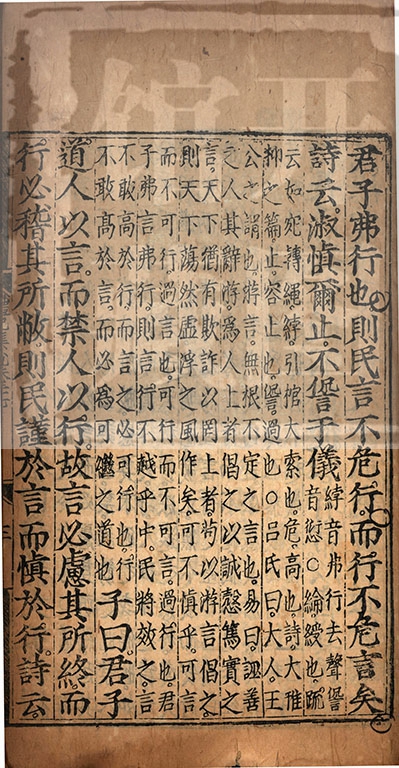 君子弗行也則民言不危行而行不危言矣
詩云淑慎爾止不諐于儀綍音弗行去聲諐
音愆○綸綬也疏
云如宛轉繩綍引棺大索也危高也詩大雅
抑之篇止容止也諐過也○呂氏曰大人王
公之謂也游言無根不定之言也易曰誣善
之人其辭游爲人上者倡之以誠慤篤實之
言天下猶有欺詐以罔上者苟以游言倡之
則天下蕩然虛浮之風作矣可不慎乎可言
而不可行過言也可行而不可言過行也君
子弗言弗行則言行不越乎中民將效之言
不敢高於行而言之必可行也行
不敢高於言而必爲可繼之道也子曰君子
道人以言而禁人以行故言必慮其所終而
行必稽其所敝則民謹於言而慎於行詩云